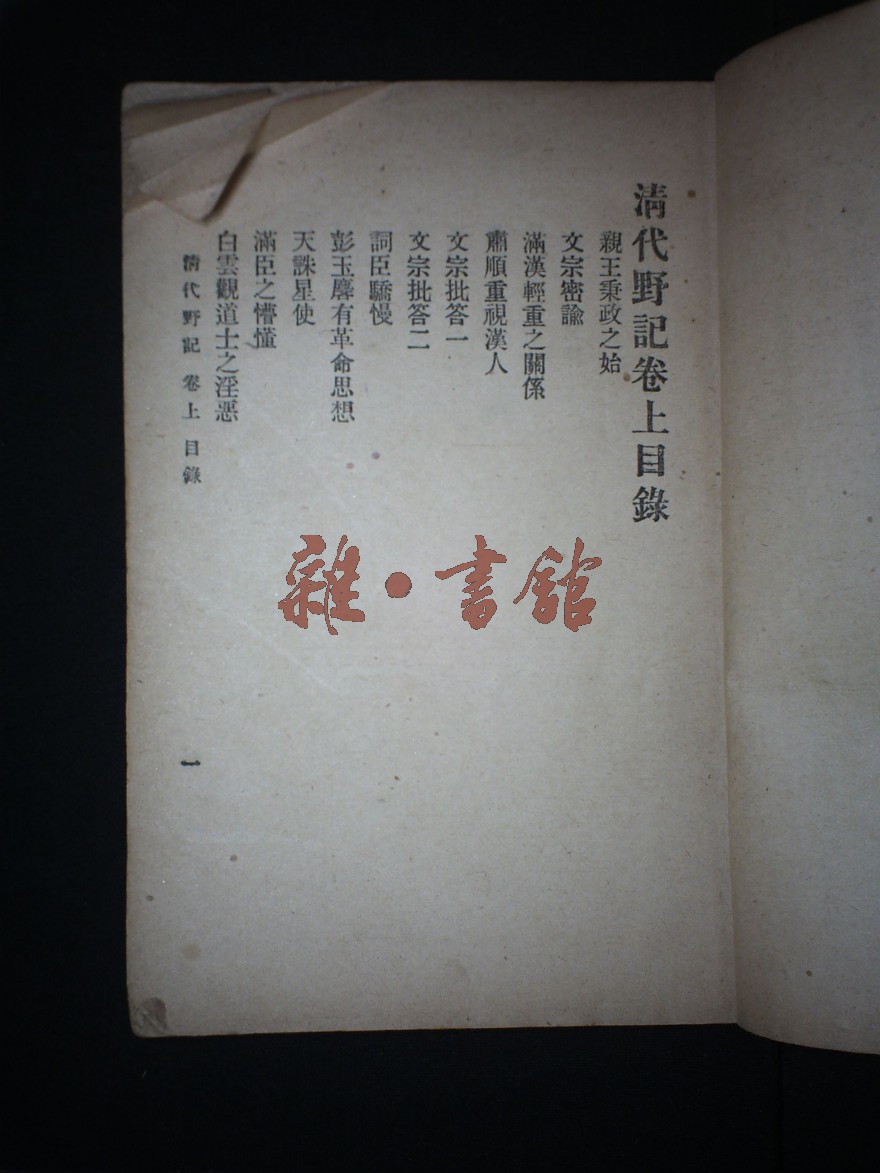 清代野記卷上目錄
親王秉政之始
文宗密諭
滿漢輕重之關係
肅順重視漢人
文宗批答一
文宗批答二
詞臣驕慢
彭玉麐有革命思想
天誅星使
滿臣之懵懂
白雲觀道士之淫惡
清代野記 卷上 目錄
一
雜·書館